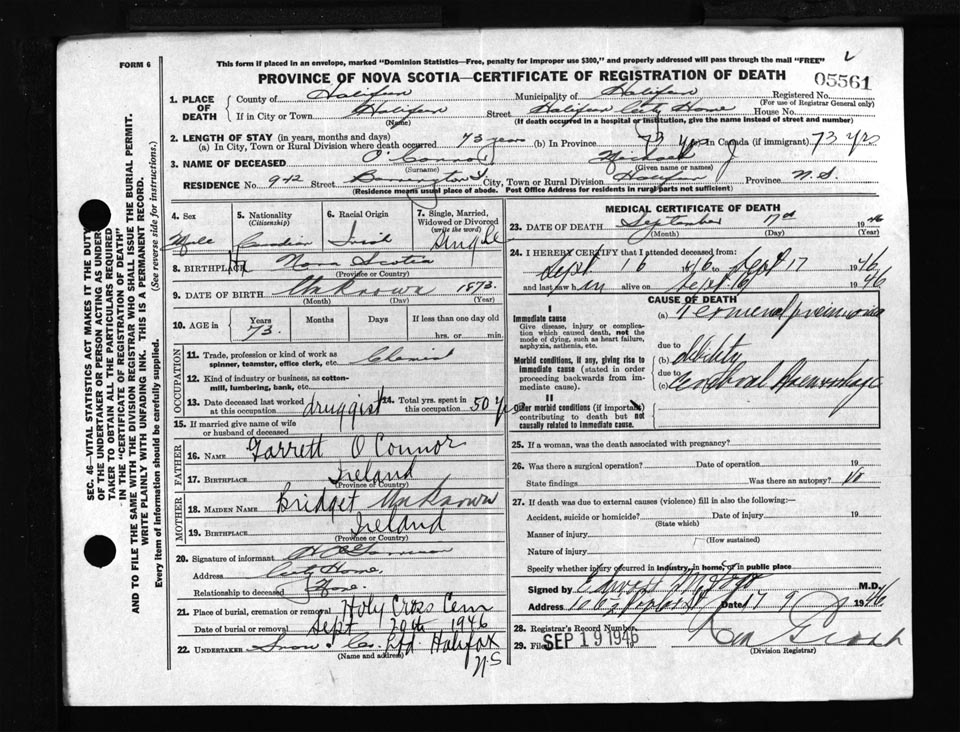 FORM 6
This form if placed in an envelope, marked "Dominion Statistics—Free, penalty for improper use $300," and properly addressed will pass through the mail "FREE"
PROVINCE OF NOVA SCOTIA—CERTIFICATE OF REGISTRATION OF DEATH
05561
SEC. 46—VITAL STATISTICS ACT MAKES IT THE DUTY
OF THE UNDERTAKER OR PERSON ACTING AS UNDER-
TAKER TO OBTAIN ALL THE PARTICULARS REQUIRED
IN THE "CERTIFICATE OF REGISTRATION OF DEATH"
AND TO FILE THE SAME WITH THE DIVISION REGISTRAR WHO SHALL ISSUE THE BURIAL PERMIT.
WRITE PLAINLY WITH UNFADING INK. THIS IS A PERMANENT RECORD.
Every item of information should be carefully supplied. (See reverse side for instructions.)
1. PLACE OF DEATH
County of Halifax Municipality of Halifax Registered No.
(For use of Registrar General only)
If in City or Town Halifax Street Halifax City Home House No.
(Name) (If death occurred in a hospital or institution, give the name instead of street and number)
2. LENGTH OF STAY (in years, months and days)
(a) In City, Town or Rural Division where death occurred 73 years (b) In Province 73 yrs In Canada (if immigrant) 73 yrs
3. NAME OF DECEASED O'Connor Michael J
(Surname) (Given name or names)
RESIDENCE No. 942 Street Barrington St City, Town or Rural Division Halifax Province N.S.
(Residence means usual place of abode. Post Office Address for residents in rural parts not sufficient)
4. Sex
Male
5. Nationality (Citizenship)
Canadian
6. Racial Origin
Irish
7. Single, Married, Widowed or Divorced (write the word)
Single
8. BIRTHPLACE Nova Scotia
(Province or Country)
9. DATE OF BIRTH Unknown 1873
(Month) (Day) (Year)
10. AGE in Years Months Days If less than one day old
73 hrs. or min.
OCCUPATION
11. Trade, profession or kind of work as spinner, teamster, office clerk, etc.
12. Kind of industry or business, as cotton-mill, lumbering, bank, etc.
13. Date deceased last worked at this occupation druggist 14. Total yrs. spent in this occupation 50 yrs
15. If married give name of wife or husband of deceased
FATHER
16. NAME Garrett O'Connor
17. BIRTHPLACE Ireland
(Province or Country)
MOTHER
18. MAIDEN NAME Bridget Unknown
19. BIRTHPLACE Ireland
(Province or Country)
20. Signature of informant
Address City Home,
Relationship to deceased None.
21. Place of burial, cremation or removal Holy Cross Cem
Date of burial or removal Sept 20th 1946
22. UNDERTAKER Snow & Co. Ltd. Halifax
(Name and address) NS
MEDICAL CERTIFICATE OF DEATH
23. DATE OF DEATH September 17th 1946
(Month) (Day) (Year)
24. I HEREBY CERTIFY that I attended deceased from:
Sept 16 1946 to Sept 17 1946
and last saw him alive on Sept. 1946
CAUSE OF DEATH
I
Immediate cause
Give disease, injury or complication which caused death, not the mode of dying, such as heart failure, asphyxia, asthenia, etc.
(a) Terminal pneumonia
due to
Morbid conditions, if any, giving rise to immediate cause (stated in order proceeding backwards from immediate cause).
(b) debility
due to
(c) Cerebral Haemorrhage
II
Other morbid conditions (if important) contributing to death but not causally related to immediate cause.
25. If a woman, was the death associated with pregnancy?
26. Was there a surgical operation? Date of operation 19
State findings Was there an autopsy? No
27. If death was due to external causes (violence) fill in also the following:—
Accident, suicide or homicide? Date of injury 19
(State which)
Manner of injury
(How sustained)
Nature of injury
Specify whether injury occurred in industry, in home, or in public place
Signed by M.D.
Address Date 17 9 1946
28. Registrar's Record Number
29. Filed SEP 19 1946
(Division Registrar)